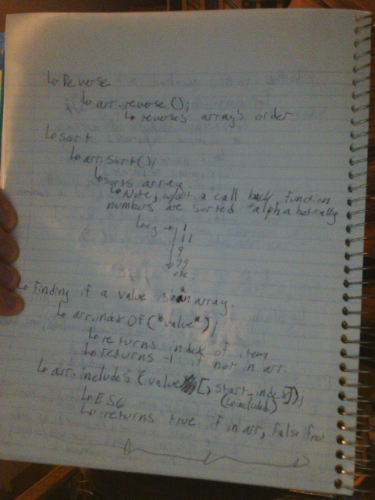 ↳ Reverse
↳ arr.reverse();
↳ reverses array's order
↳ sort
↳ arr.sort();
↳ sorts array
↳ Note, w/out a call back function
numbers are sorted alphabetically
↳ e.g. → 1
11
9
99
etc.
↳ Finding if a value is in an array.
↳ arr.indexOf("value");
↳ returns index of item
↳ returns -1 if not in arr.
↳ arr.includes (value [, start-index]);
(included)
↳ ES6
↳ returns true if in arr, false if not